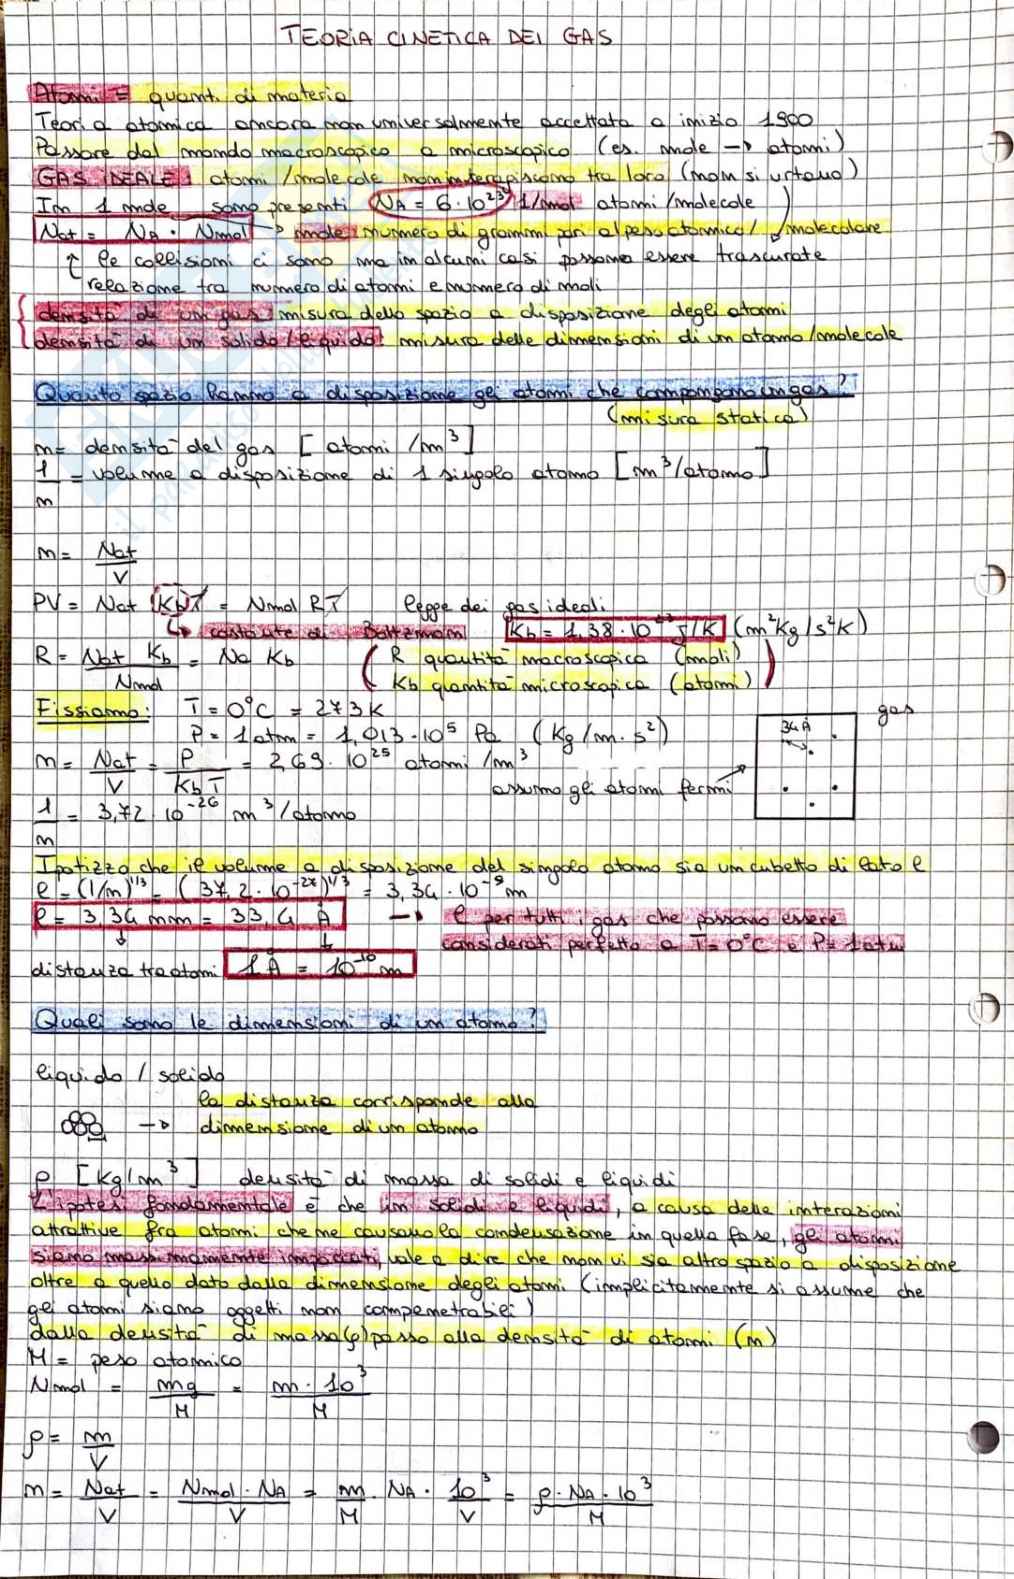 TEORIA CINETICA DEI GAS
Atomi = quanti di materia
Teoria atomica ancora non universalmente accettata a inizio 1900
Passare dal mondo macroscopico a microscopico (es. mole → atomi)
GAS IDEALE: atomi/molecole non interagiscono tra loro (non si urtano)
In 1 mole sono presenti NA = 6·10²³ 1/mol atomi/molecole
Nat = NA · Nmol → mole: numero di grammi pari al peso atomico/molecolare
↑ le collisioni ci sono ma in alcuni casi possono essere trascurate
relazione tra numero di atomi e numero di moli
densità di un gas: misura dello spazio a disposizione degli atomi
densità di un solido/liquido: misura delle dimensioni di un atomo/molecole
Quanto spazio hanno a disposizione gli atomi che compongono un gas?
(misura statica)
n = densità del gas [atomi/m³]
1/n = volume a disposizione di 1 singolo atomo [m³/atomo]
n = Nat/V
PV = Nat KbT = Nmol RT legge dei gas ideali
↳ costante di Boltzmann Kb = 1,38·10⁻²³ J/K (m²Kg/s²K)
R = Nat Kb/Nmol = Na Kb (R quantità macroscopica (moli)
Kb quantità microscopica (atomi))
Fissiamo: T = 0°C = 273K
P = 1atm = 1,013·10⁵ Pa (Kg/m·s²)
gas
34Å
n = Nat/V = P/KbT = 2,69·10²⁵ atomi/m³
assumo gli atomi fermi
1/n = 3,72·10⁻²⁶ m³/atomo
Ipotizzo che il volume a disposizione del singolo atomo sia un cubetto di lato l
l = (1/n)^1/3 = (37,2·10⁻²⁷)^1/3 = 3,34·10⁻⁹ m
l = 3,34 nm = 33,4 Å → l per tutti i gas che possono essere
considerati perfetto a T = 0°C e P = 1atm
distanza tra atomi 1Å = 10⁻¹⁰ m
Quali sono le dimensioni di un atomo?
liquido / solido
la distanza corrisponde alla
→ dimensione di un atomo
ρ [Kg/m³] densità di massa di solidi e liquidi
L'ipotesi fondamentale è che in solidi e liquidi, a causa delle interazioni
attrattive fra atomi che ne causano la condensazione in quella fase, gli atomi
siano massimamente impaccati, vale a dire che non vi sia altro spazio a disposizione
oltre a quello dato dalla dimensione degli atomi (implicitamente si assume che
gli atomi siano oggetti non compenetrabili)
dalla densità di massa (ρ) passo alla densità di atomi (n)
M = peso atomico
Nmol = mg/M = m·10³/M
ρ = m/V
n = Nat/V = Nmol·NA/V = m/M · NA · 10³/V = ρ·NA·10³/M